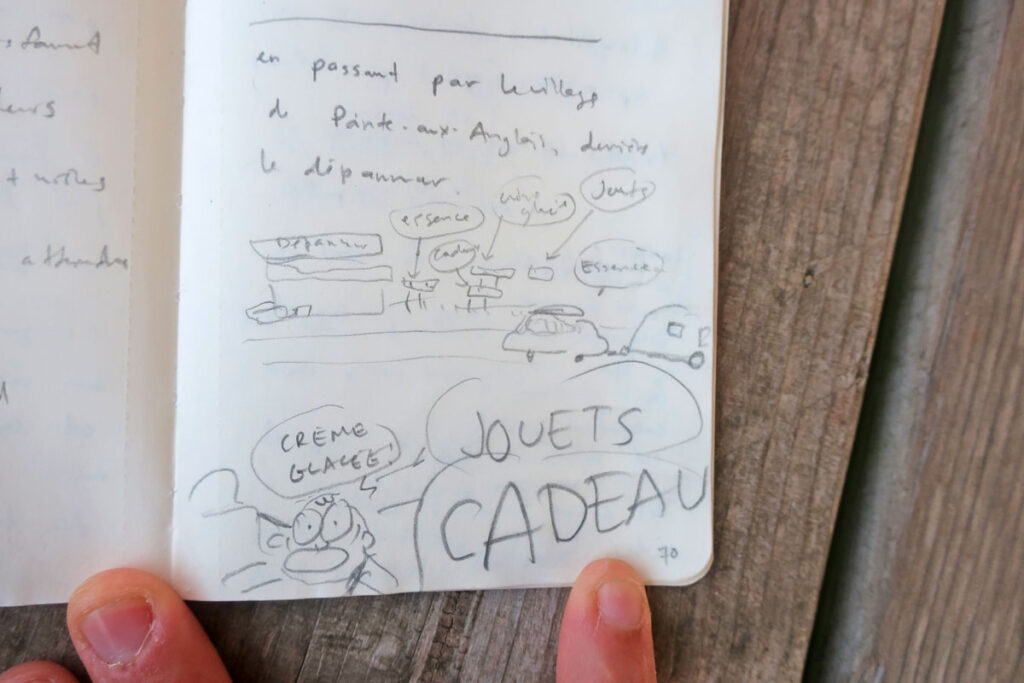 leurs
en passant par le village
de Pointe-aux-Anglais, derrière
le dépanneur.
crème glacée
Jouets
essence
Dépanneur
Cadeau
Essence
JOUETS
CRÈME
GLACÉE!
CADEAU
70